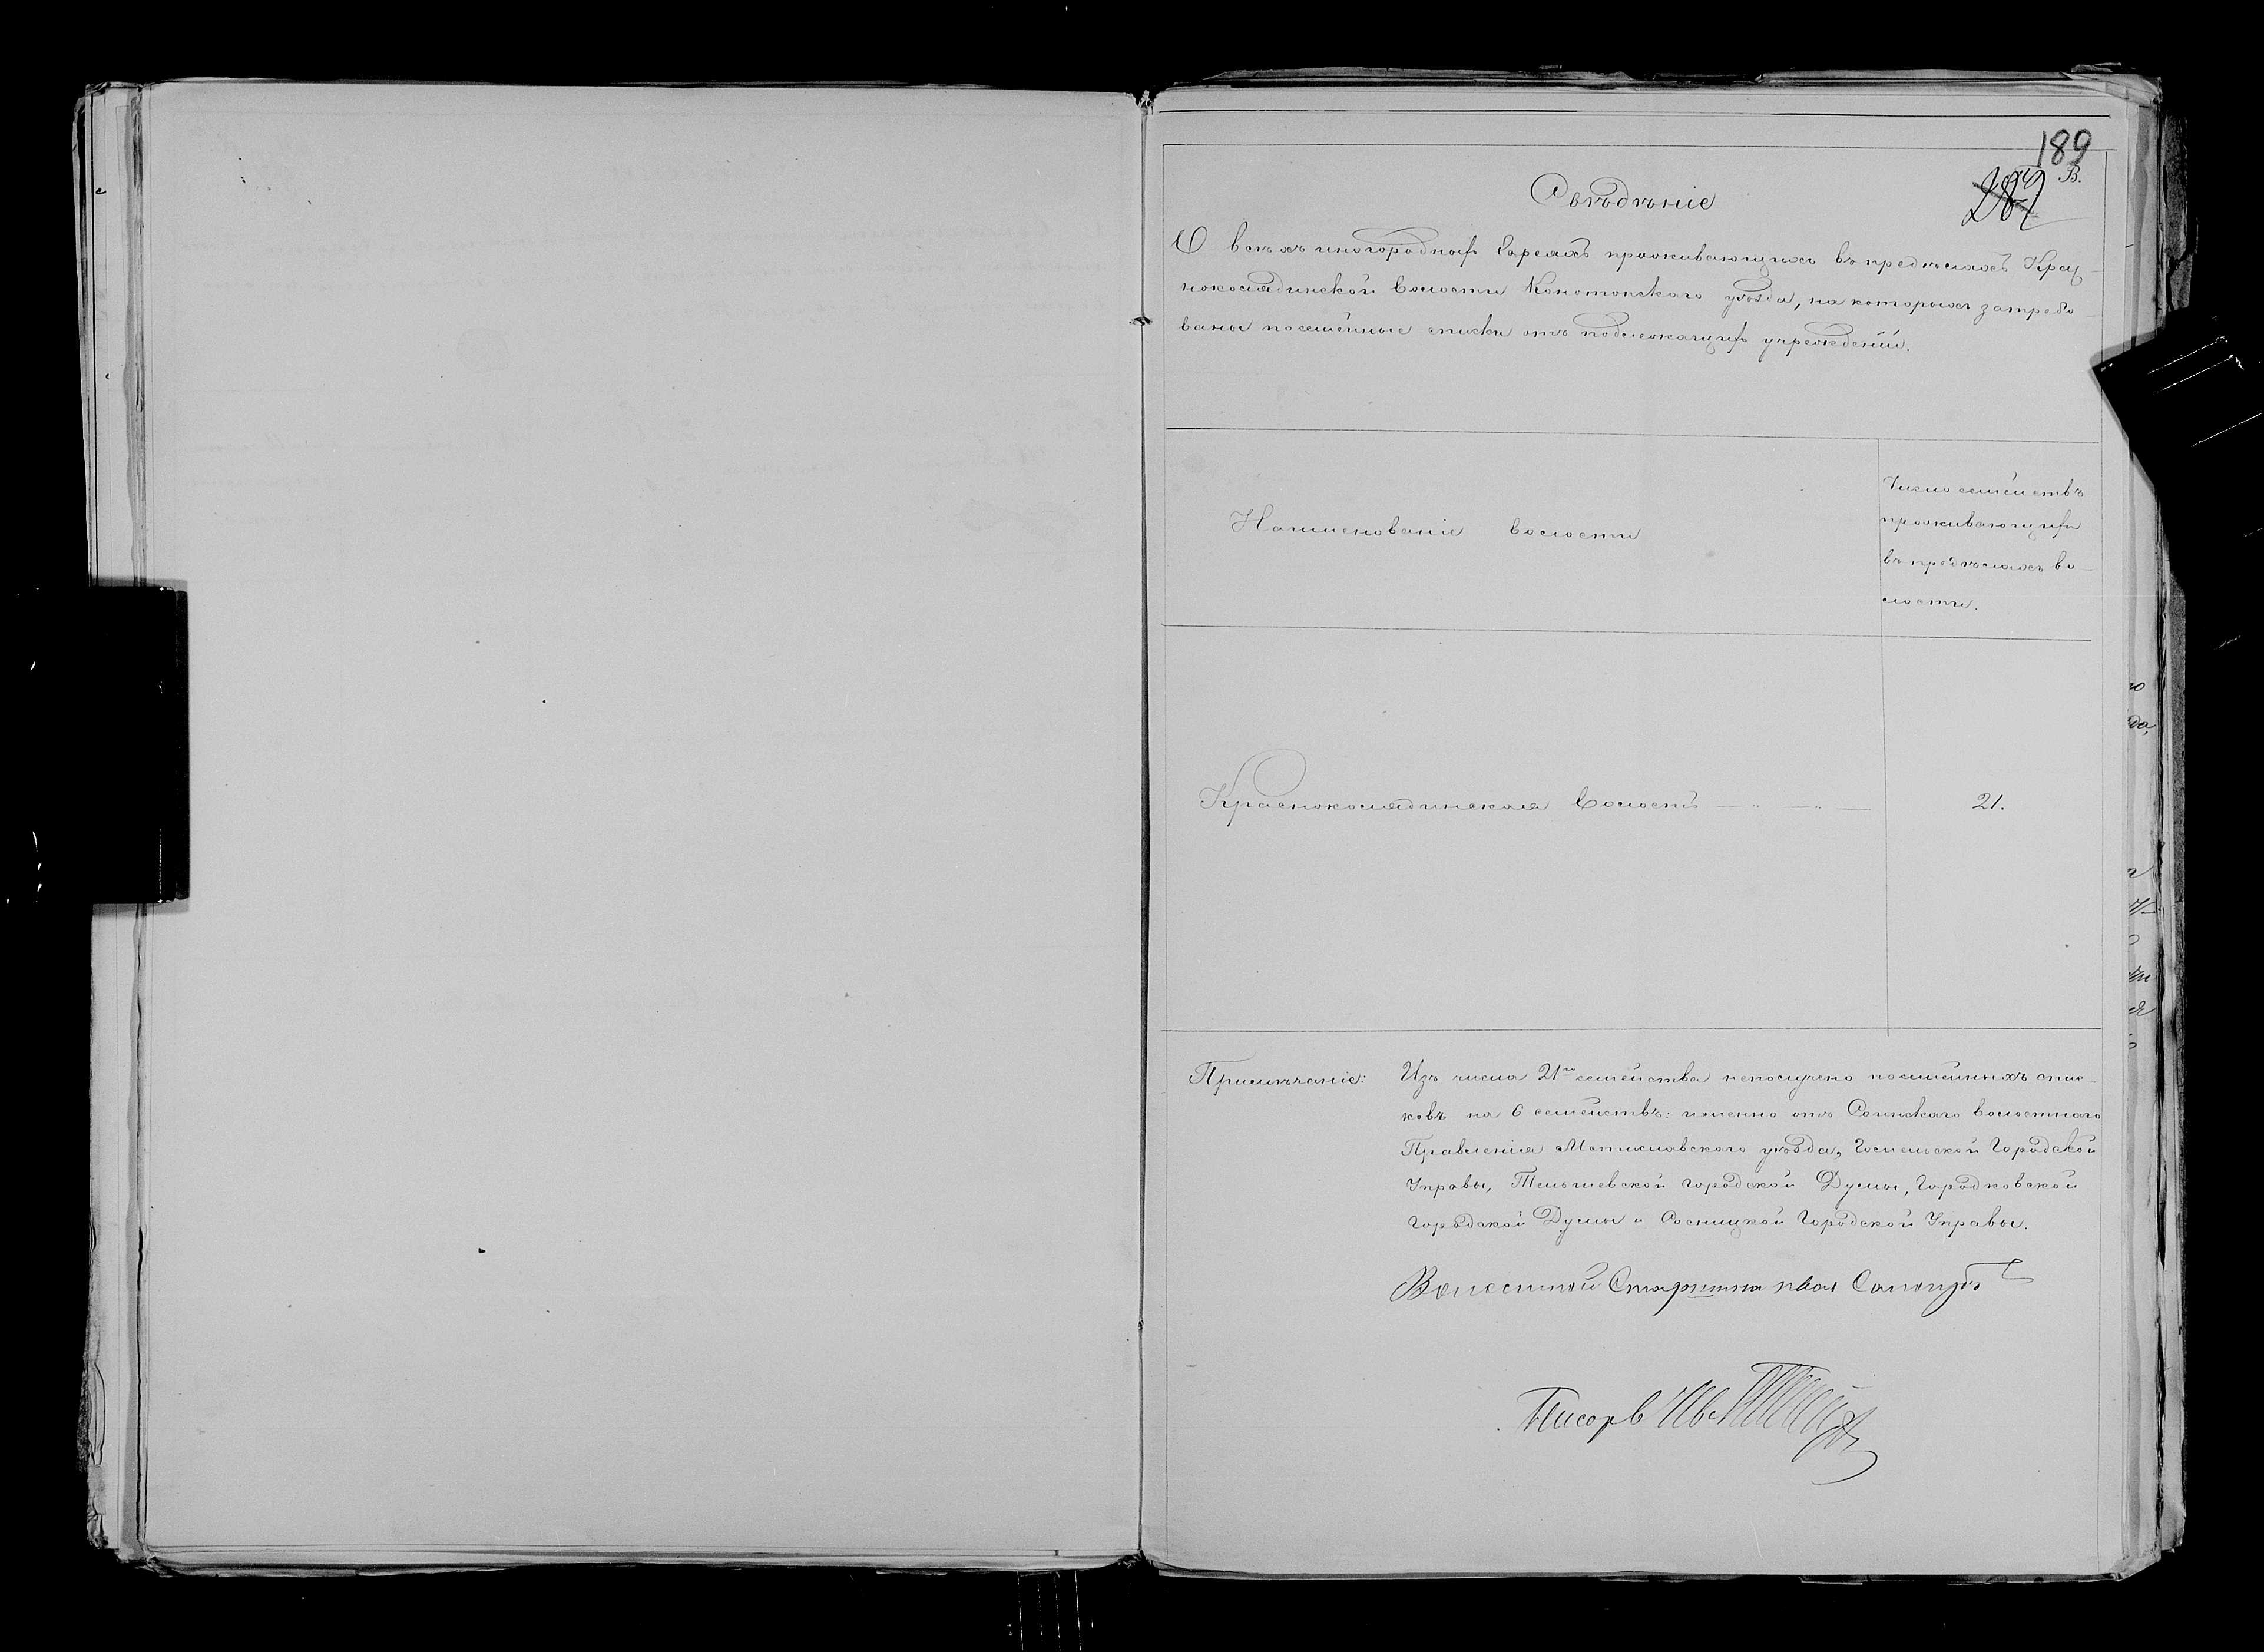 189
В.
Свѣдѣніе
О всѣхъ иногороднихъ Евреяхъ проживающихъ въ предѣлахъ Крас-
ноколядинской волости Конотопскаго уѣзда, на которыхъ затребо-
ваны посемейные списки отъ подлежащихъ учрежденій.
Наименованіе волости
Число семействъ
проживающихъ
въ предѣлахъ во-
лости.
Красноколядинская волость
21.
Примѣчаніе: Изъ числа 21го семейства неполучено посемейныхъ спис-
ковъ на 6 семействъ: именно отъ волостнаго
Правленія Мстиславского уѣзда, Гомельской Городской
Управы, Тельшевской городской Думы, Городковской
Городской Думы и Сосницкой Городской Управы.
Волостной Старшина
Писарь